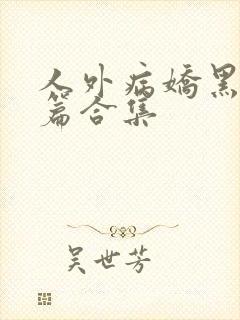 人外病嬌黑
篇合集
吴世芳